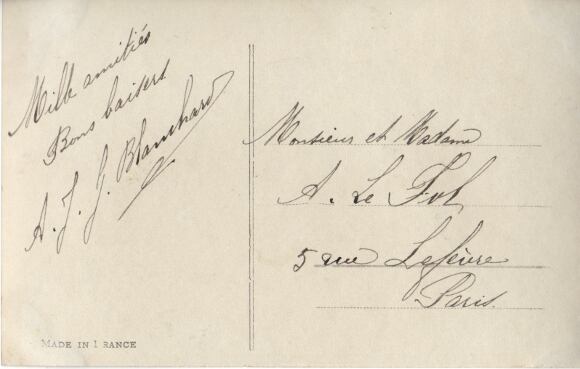 Mille amitiés
Bons baisers
A. J. J. Blanchard
Monsieur et Madame
A. Le Fol
5 rue Lefèvre
Paris.
MADE IN FRANCE